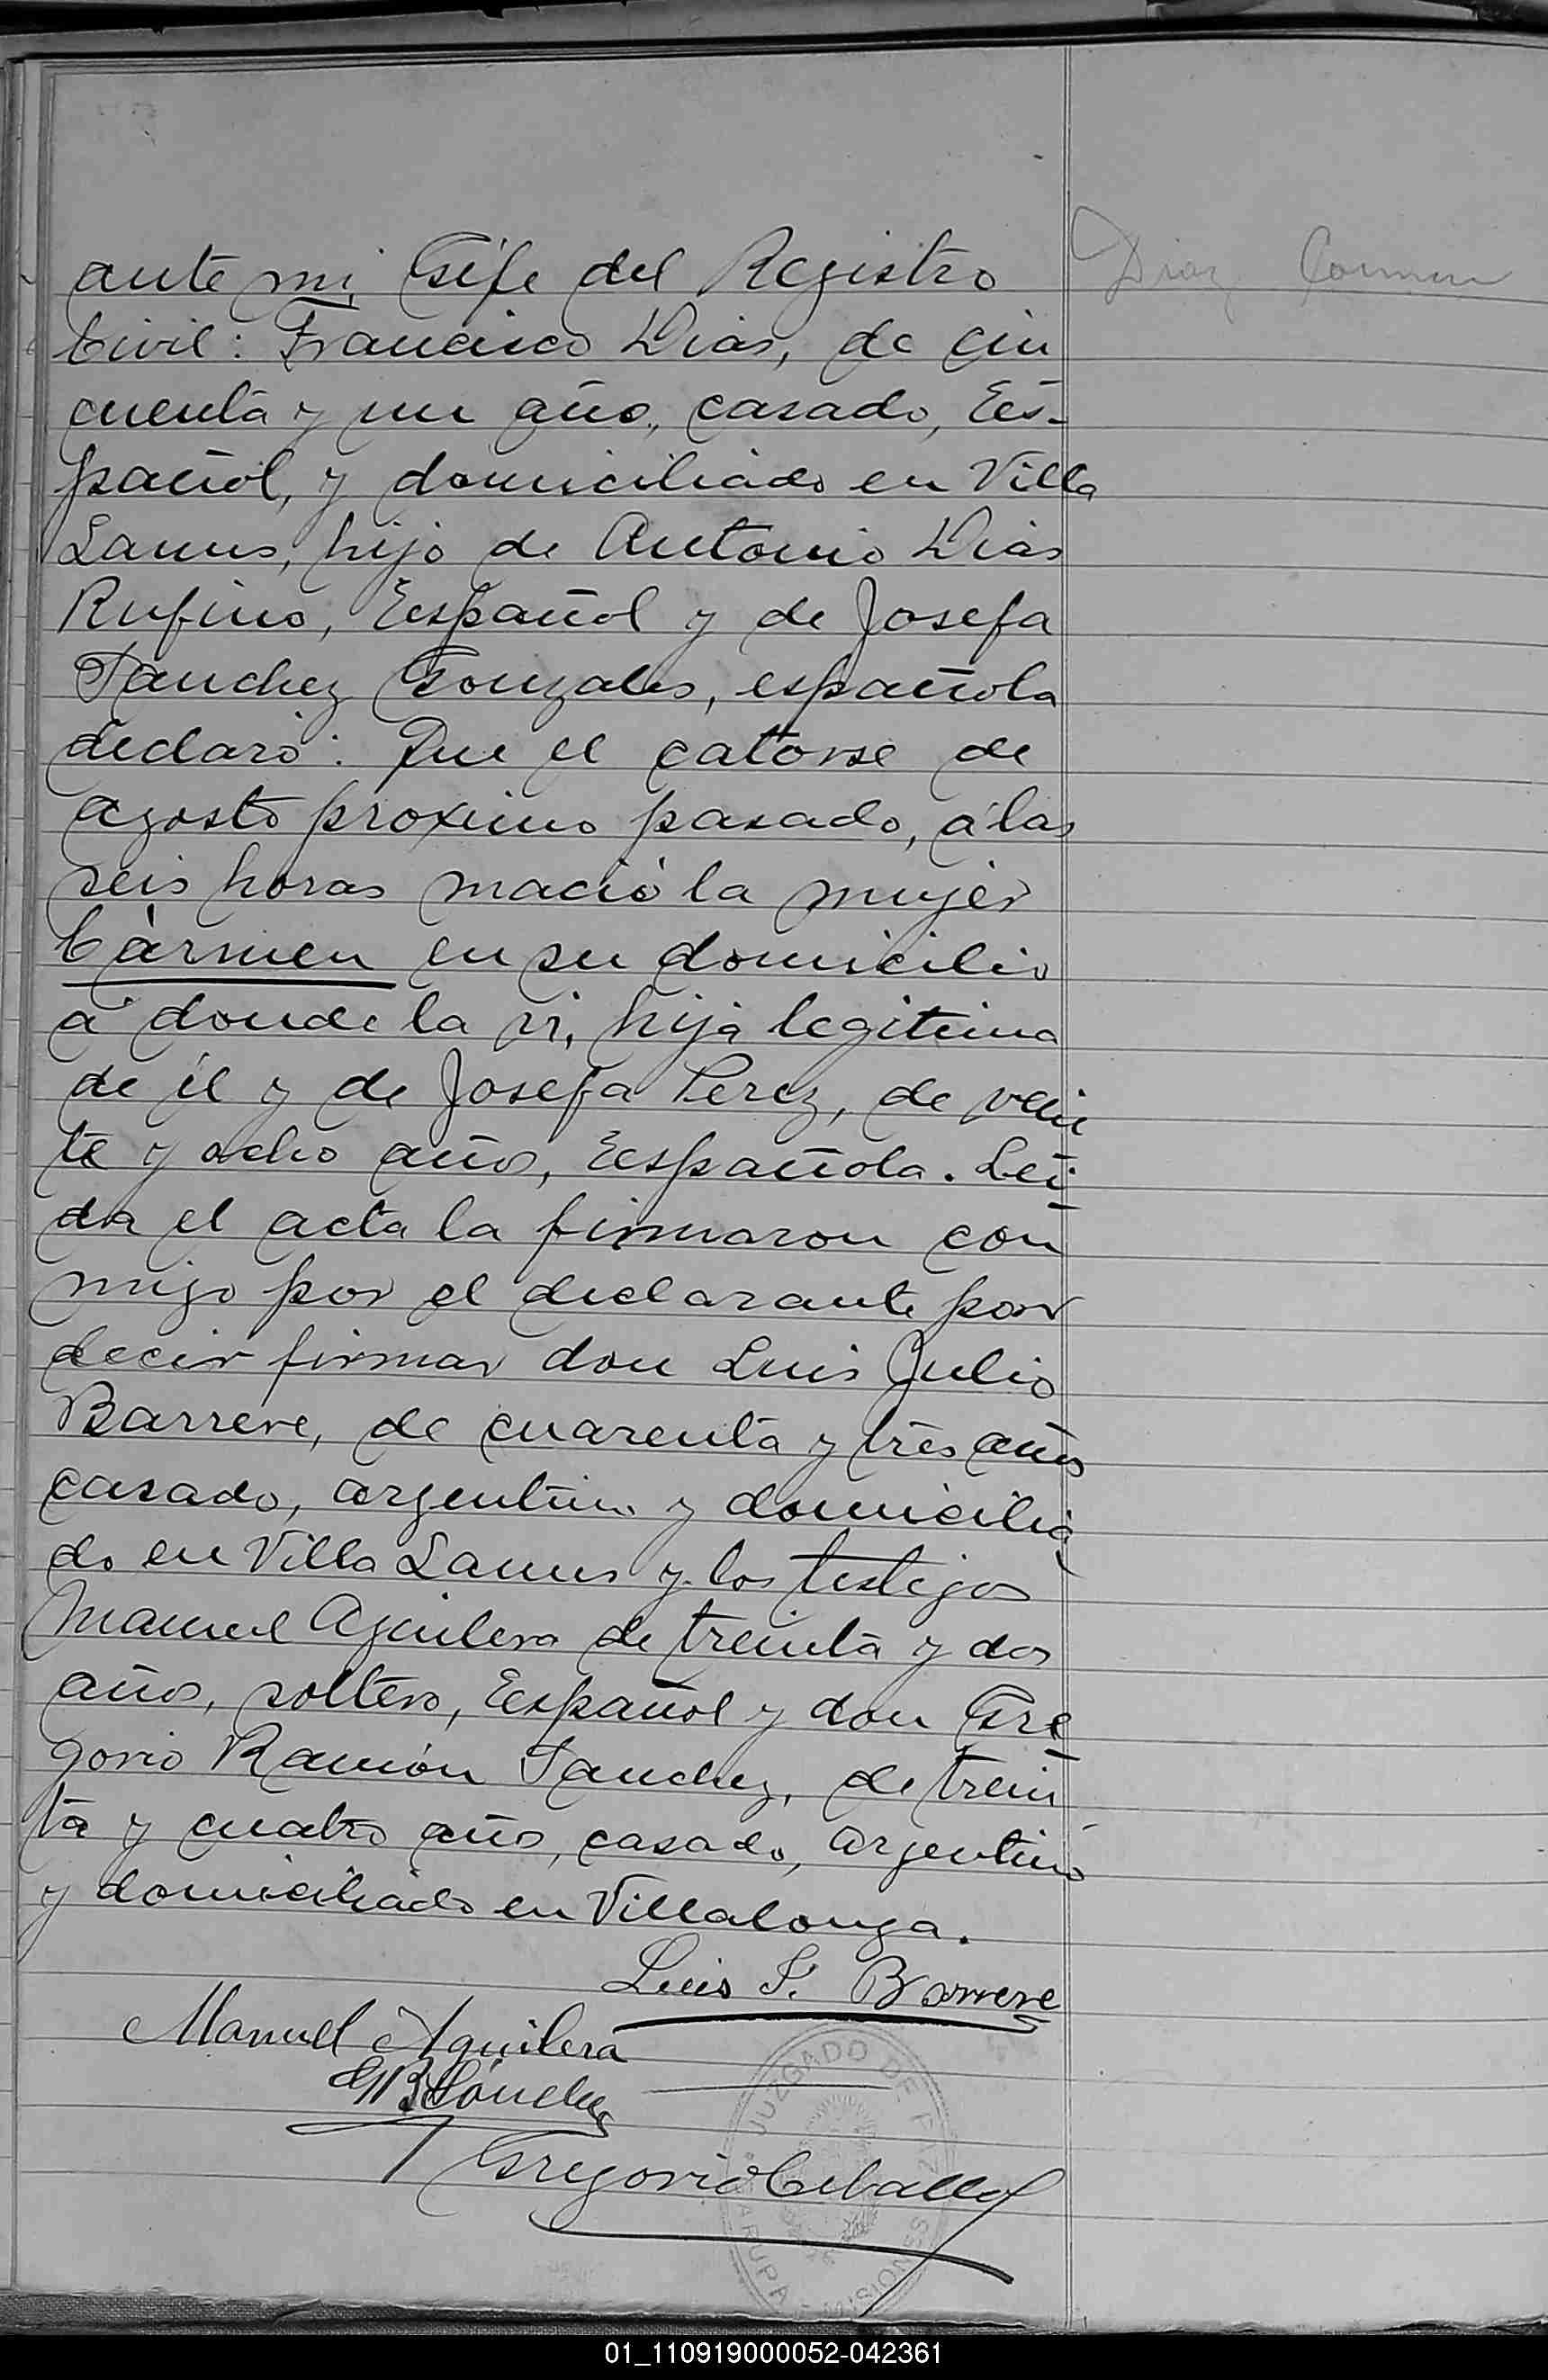 ante mi Gefe del Registro
Diaz Carmen
Civil: Francisco Dias, de cin
cuenta y un año, casado, Es-
pañol, y domiciliado en Villa
Lanus, hijo de Antonio Dias
Rufino, Español y de Josefa
Sanchez Gonzales, española
declaró: Que el catorse de
agosto proximo pasado, á las
seis horas nació la mujer
Cármen en su domicilio
á donde la vi, hija legitima
de él y de Josefa Perez, de vein
te y ocho años, Española. Leí-
da el acta la firmaron con
migo por el declarante por
decir firmar don Luis Julio
Barrere, de cuarenta y tres años
casado, argentino y domicilia
do en Villa Lanus y los testigos
Manuel Aguilera de treinta y dos
años, soltero, Español y don Gre
gorio Ramón Sanchez, de trein
ta y cuatro año, casado, argentino
y domiciliado en Villalonga.
Luis J. Barrere
Manuel Aguilera
GR Sánchez
Gregorio Ceballos
JUZGADO DE PAZ
GARUPA MISIONES
01_110919000052-042361